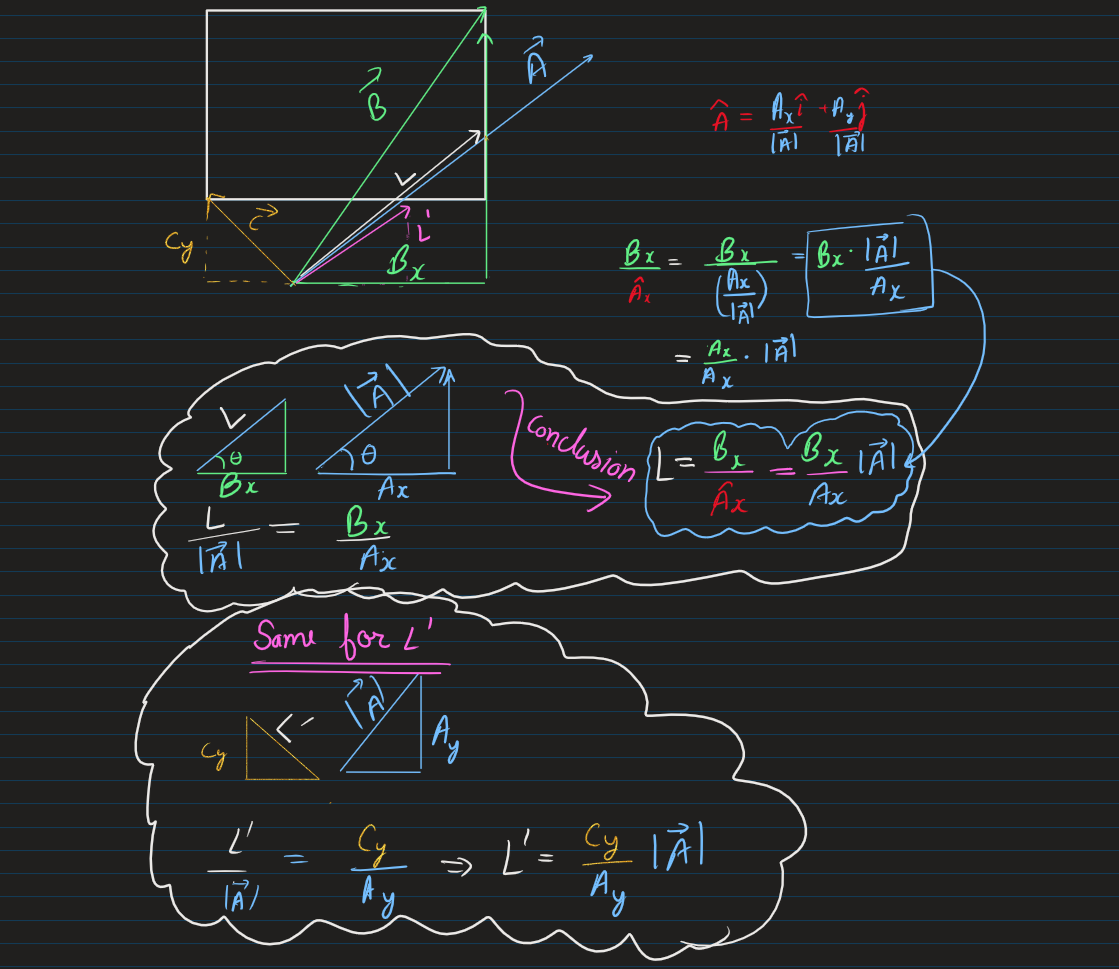 B⃗
A⃗
L
C⃗
L'
Cy
Bx
Â = Ax î / |A⃗| + Ay ĵ / |A⃗|
Bx / Âx = Bx / (Ax / |A⃗|) = Bx · |A⃗| / Ax
= Ax / Ax · |A⃗|
L
θ
Bx
|A⃗|
θ
Ax
L / |A⃗| = Bx / Ax
Conclusion
L = Bx / Âx = Bx / Ax |A⃗|
Same for L'
Cy
L'
|A⃗|
Ay
L' / |A⃗| = Cy / Ay ⇒ L' = Cy / Ay |A⃗|